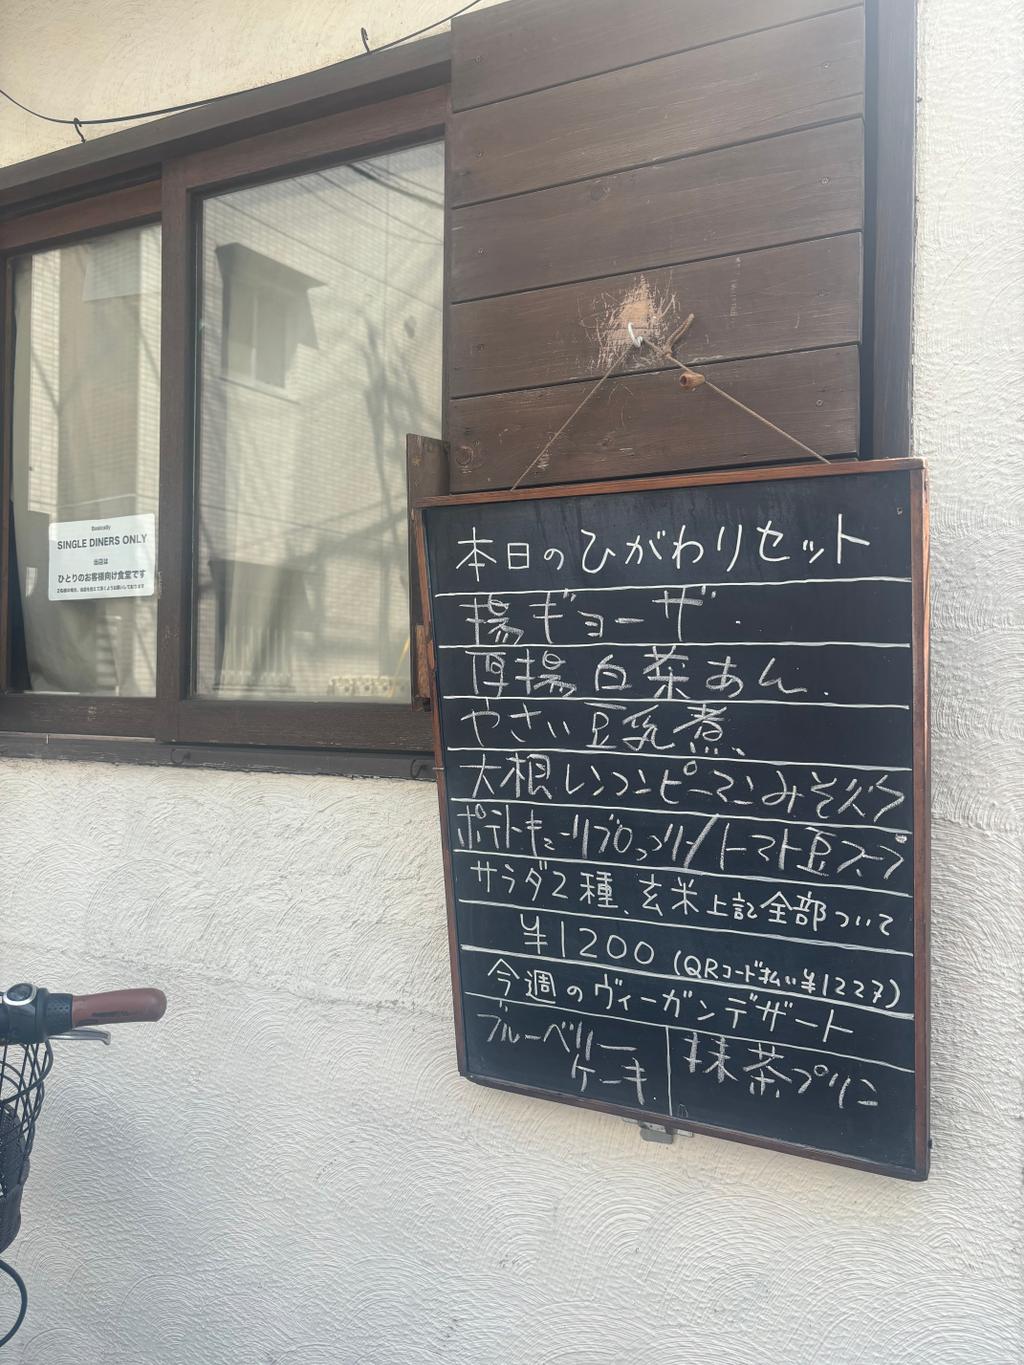 Basically
SINGLE DINERS ONLY
当店は
ひとりのお客様向け食堂です
本日のひがわりセット
揚ギョーザ.
厚揚白菜あん.
やさい豆乳煮、
大根レンコンピーマンみそ炒め
ポテトキッシュ ブロッコリー/トマト豆スープ
サラダ2種、玄米上記全部ついて
¥1200 (QRコード払い¥1227)
今週のヴィーガンデザート
ブルーベリーケーキ
抹茶プリン